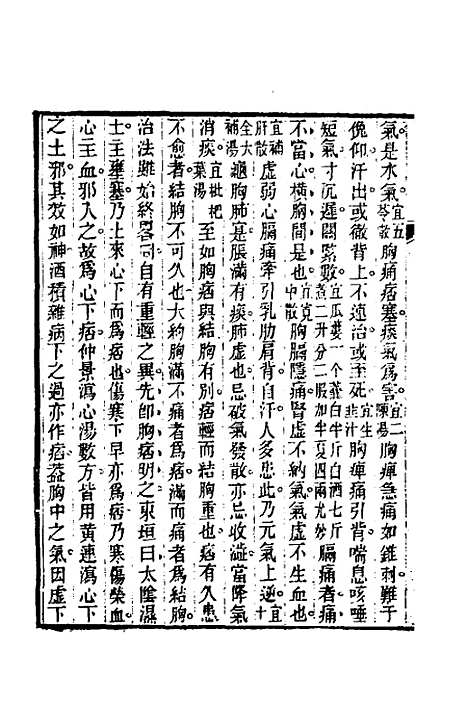 氣是水氣宜五苓散胸痛痞塞痰氣爲害宜二陳湯胸痺急痛如錐刺難于
俛仰汗出或徹背上不速治或至死宜生韭汁胸痺痛引背喘息咳唾
短氣寸沉遲關緊數宜瓜蔞一個薤白半斤白酒七斤煮二升分二服加半夏四兩尤妙膈痛者痛
不當心橫胸間是也宜寬中散胸膈隱痛腎虛不納氣氣虛不生血也
宜補肝散虛弱心膈痛牽引乳肋肩背自汗人多患此乃元氣上逆宜十
全大補湯龜胸肺是脹滿有痰肺虛也忌破氣發散亦忌收澁當降氣
消痰宜枇杷葉湯至如胸痞與結胸有別痞輕而結胸重也痞有久患
不愈者結胸不可久也大約胸滿不痛者爲痞滿而痛者爲結胸
治法雖始終畧同自有重輕之異先卽胸痞明之東垣曰太陰濕
土主壅塞乃土來心下而爲痞也傷寒下早亦爲痞乃寒傷榮血
心主血邪入之故爲心下痞仲景瀉心湯數方皆用黃連瀉心下
之土邪其效如神酒積雜病下之過亦作痞蓋胸中之氣因虛下